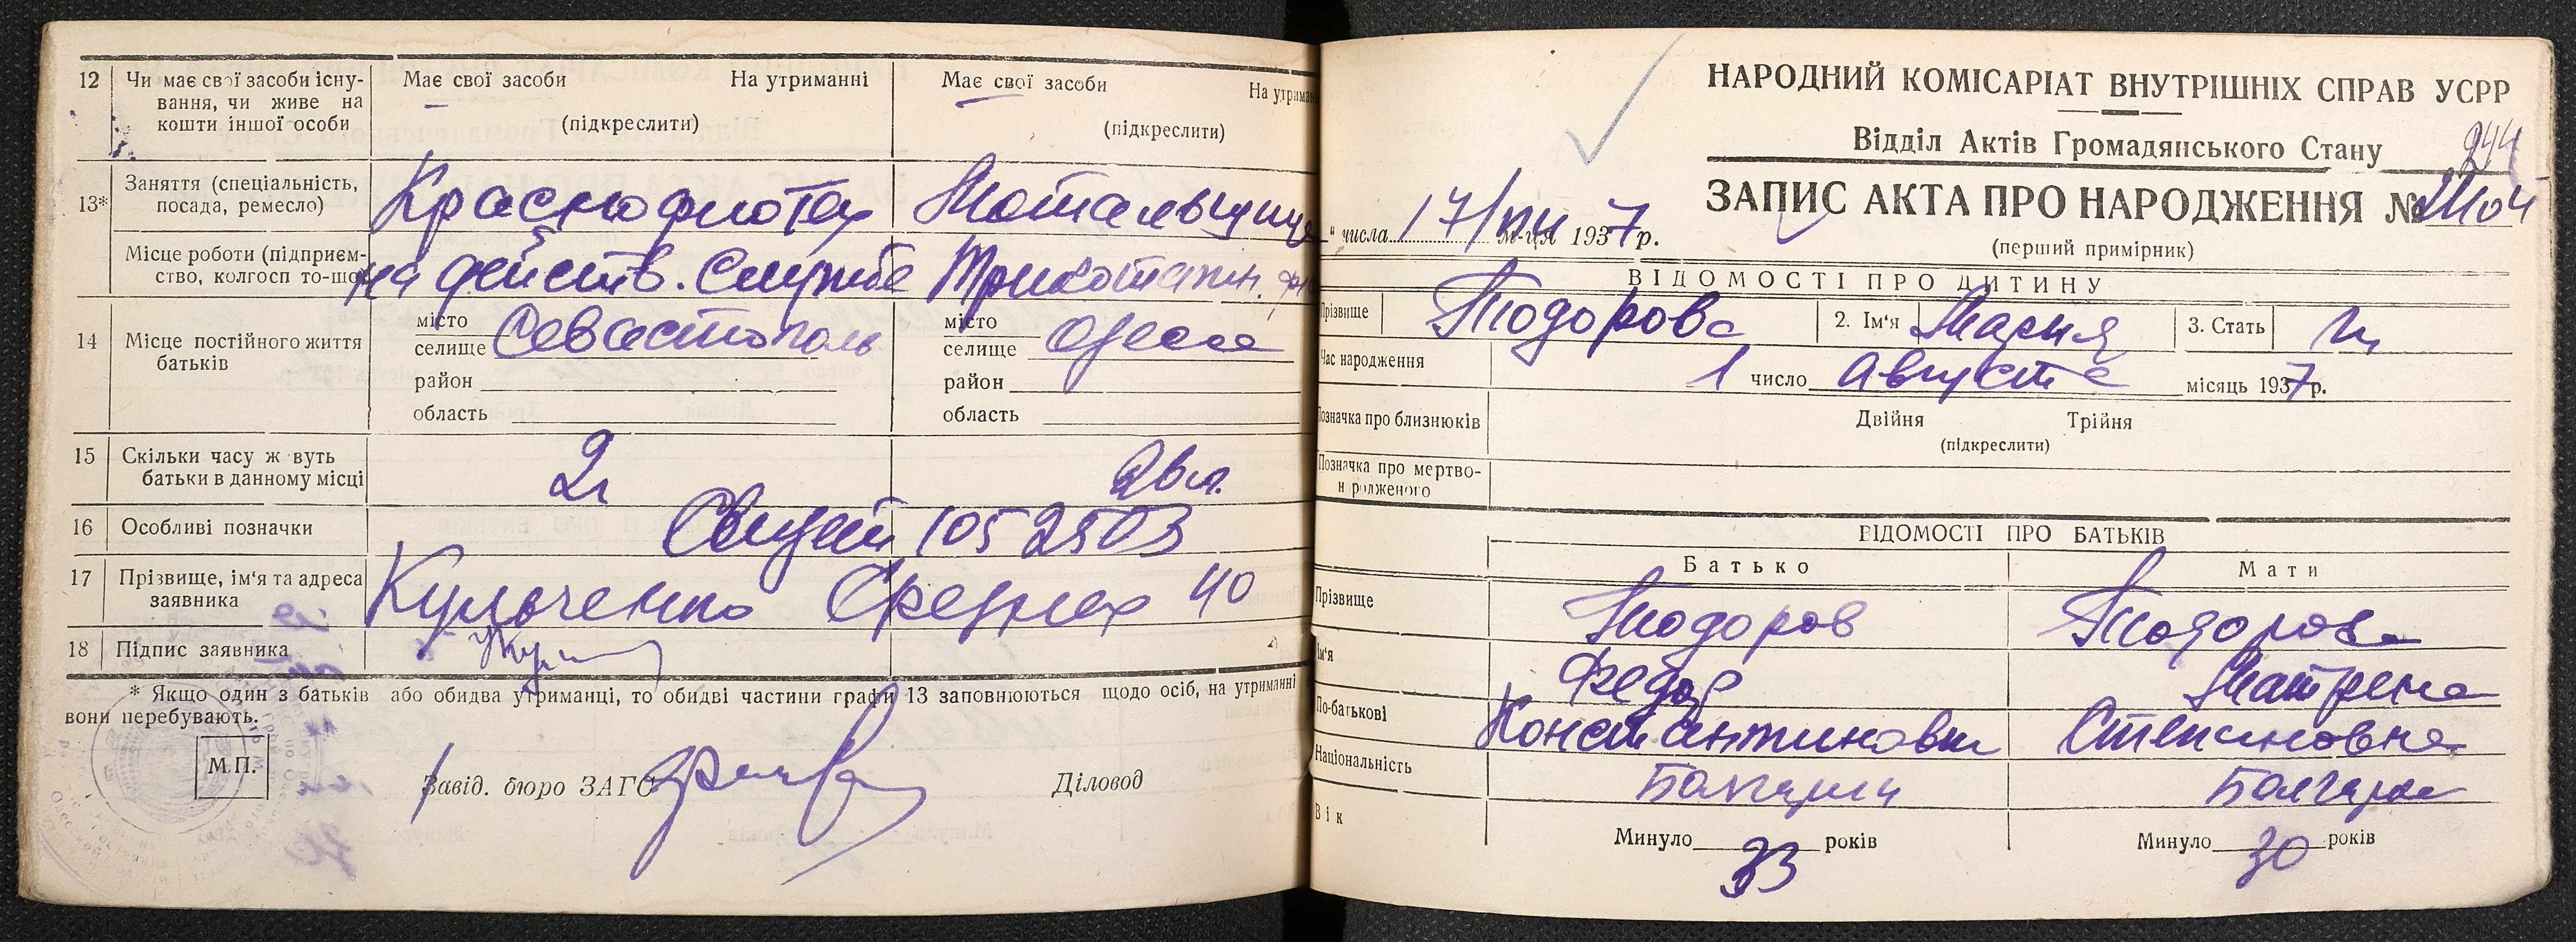 12 Чи має свої засоби існу-
вання, чи живе на
кошти іншої особи
Має свої засоби На утриманні
(підкреслити)
Має свої засоби На утрима
(підкреслити)
13* Заняття (спеціальність,
посада, ремесло)
Краснофлотец
Мотальщица
Місце роботи (підприєм-
ство, колгосп то-що)
на действ. службе
Трикотажн.
14 Місце постійного життя
батьків
місто
селище Севастополь
район
область
місто
селище Одесса
район
область
15 Скільки часу ж вуть
батьки в данному місці
2г
26 л.
16 Особливі позначки
1052503
17 Прізвище, ім'я та адреса
заявника
Кульченко 40
18 Підпис заявника
* Якщо один з батьків або обидва утриманці, то обидві частини графи 13 заповнюються щодо осіб, на утриманні
вони перебувають.
М.П.
Завід. бюро ЗАГС
Діловод
НАРОДНИЙ КОМІСАРІАТ ВНУТРІШНІХ СПРАВ УСРР
Відділ Актів Громадянського Стану
244
ЗАПИС АКТА ПРО НАРОДЖЕННЯ №
" числа 17/VIII м-ця 1937 р.
(перший примірник)
ВІДОМОСТІ ПРО ДИТИНУ
Прізвище Тодорова 2. Ім'я Мария 3. Стать
Час народження 1 число Августа місяць 1937 р.
Позначка про близнюків Двійня Трійня
(підкреслити)
Позначка про мертво-
н родженого
ВІДОМОСТІ ПРО БАТЬКІВ
Батько Мати
Прізвище Тодоров Тодорова
Ім'я Федор Матрена
По-батькові Константинович Степановна
Національність Болгарин Болгарка
Вік Минуло 33 років Минуло 30 років